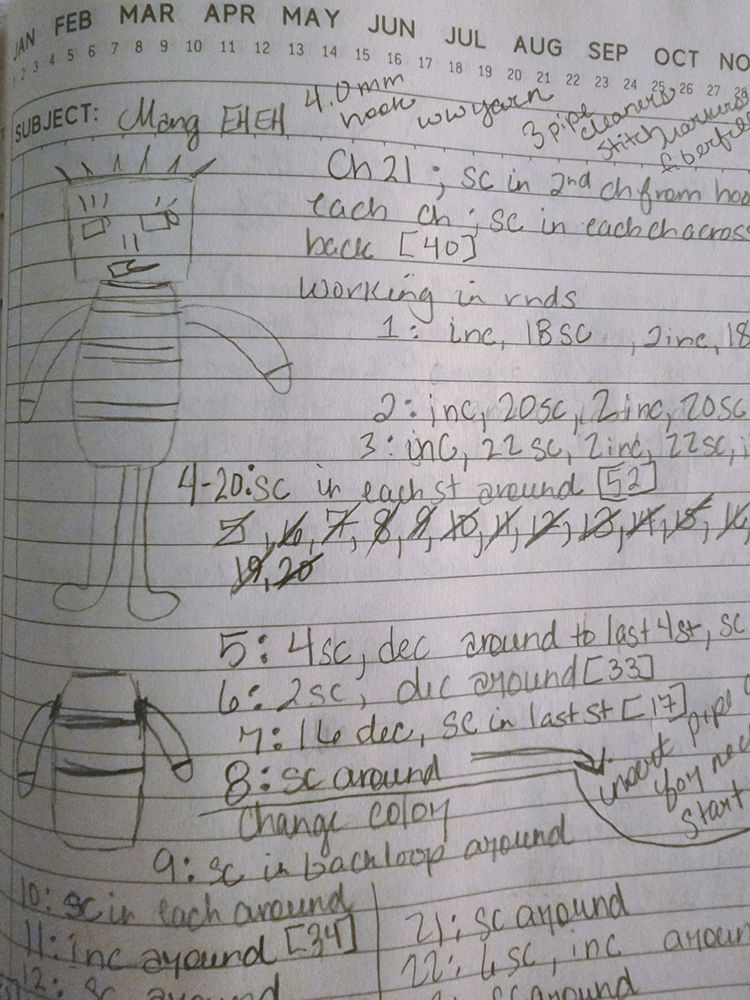 JAN FEB MAR APR MAY JUN JUL AUG SEP OCT NO
1 2 3 4 5 6 7 8 9 10 11 12 13 14 15 16 17 18 19 20 21 22 23 24 25 26 27 28
SUBJECT: Mang EHEH
4.0mm hook
ww yarn
3 pipe cleaners
stitch markers
fiberfill
Ch 21 ; sc in 2nd ch from hoo
each ch ; sc in each ch across
back [40]
working in rnds
1: inc, 18sc , 2inc, 18
2: inc, 20sc, 2inc, 20sc
3: inc, 22sc, 2inc, 22sc, i
4-20: sc in each st around [52]
5, 6, 7, 8, 9, 10, 11, 12, 13, 14, 15, 16,
19, 20
5: 4sc, dec around to last 4st, sc
6: 2sc, dec around [33]
7: 16 dec, sc in last st [17]
8: sc around
insert pipe
for nec
start
Change Color
9: sc in back loop around
10: sc in each around
11: inc around [34]
12: sc around
21: sc around
22: 4sc, inc aroun
sc around